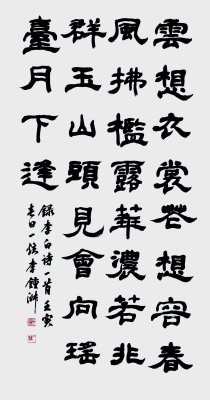 雲想衣裳花想容春
風拂檻露華濃若非
群玉山頭見會向瑤
臺月下逢
錄李白诗一首壬寅
春日一 李鍾